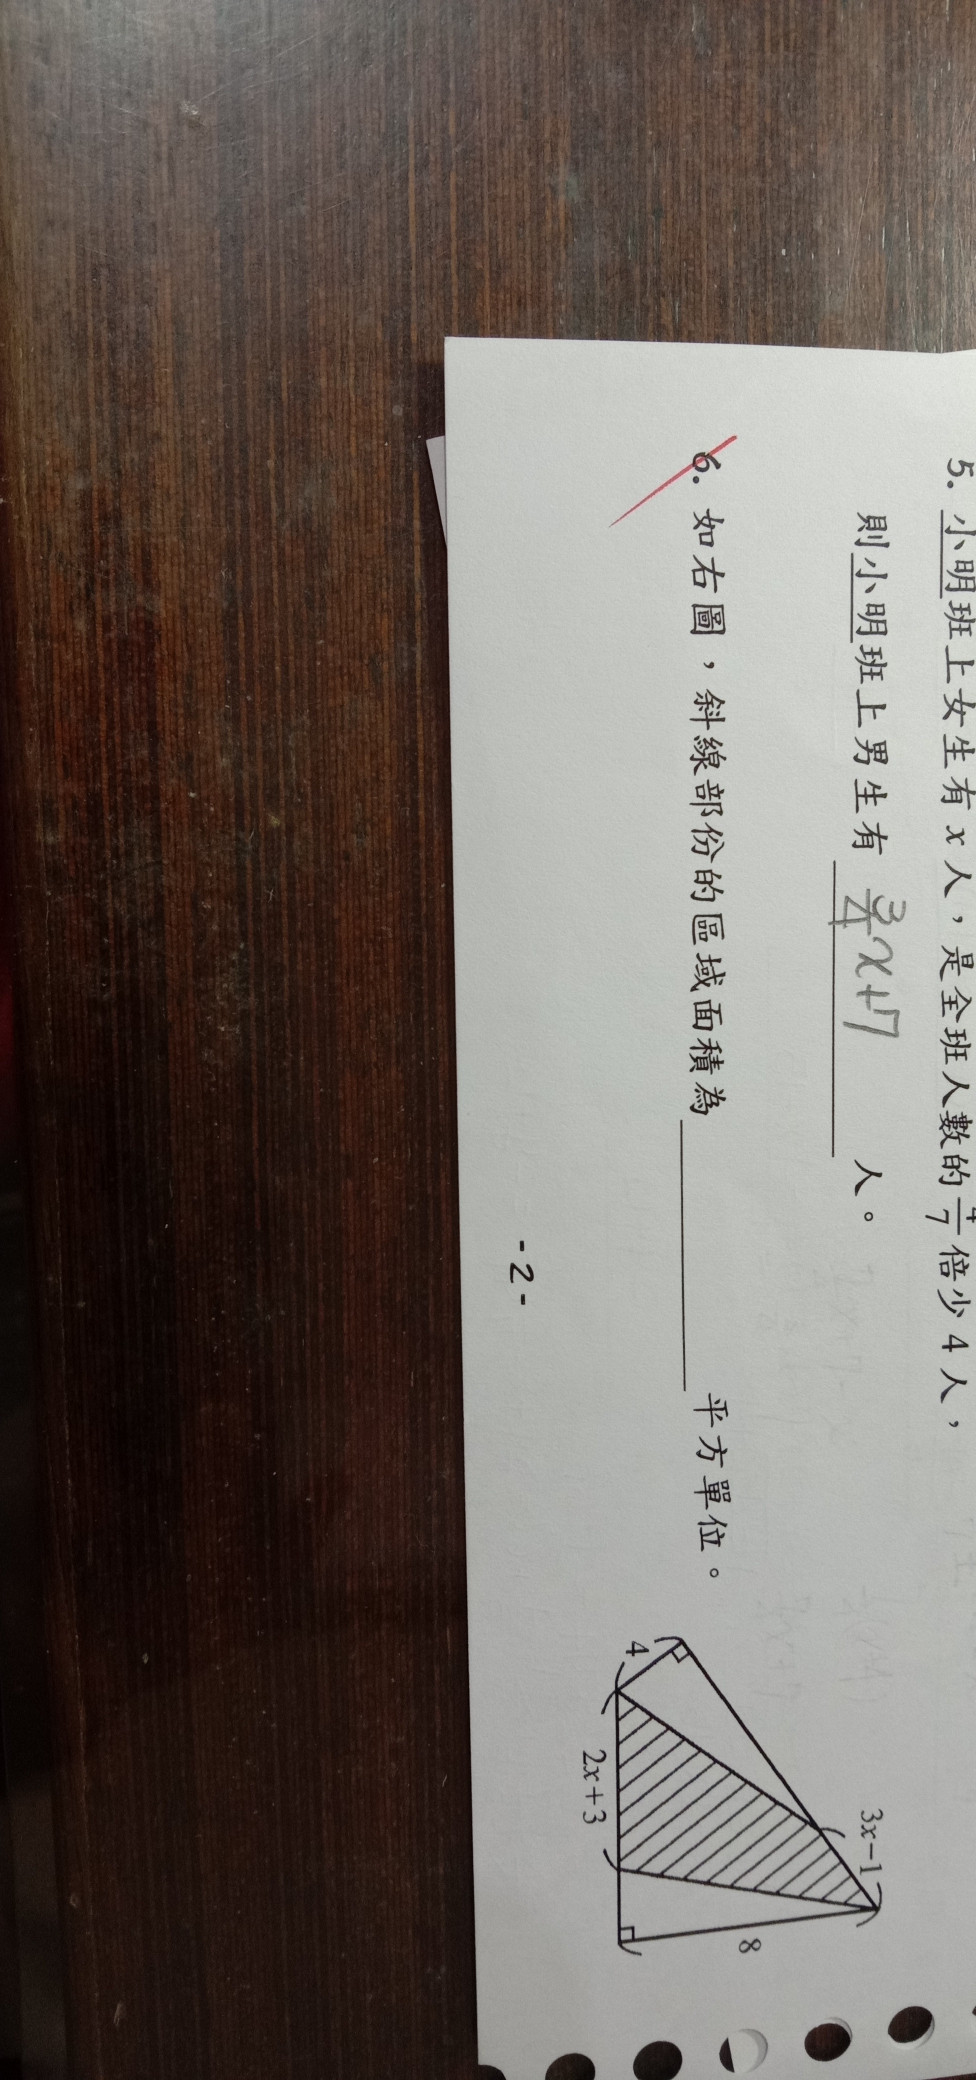 5. 小明班上女生有 x 人，是全班人數的 4/7 倍少 4 人，
則小明班上男生有 3/4x+7 人。
6. 如右圖，斜線部份的區域面積為 平方單位。
3x-1
8
4
2x+3
-2-